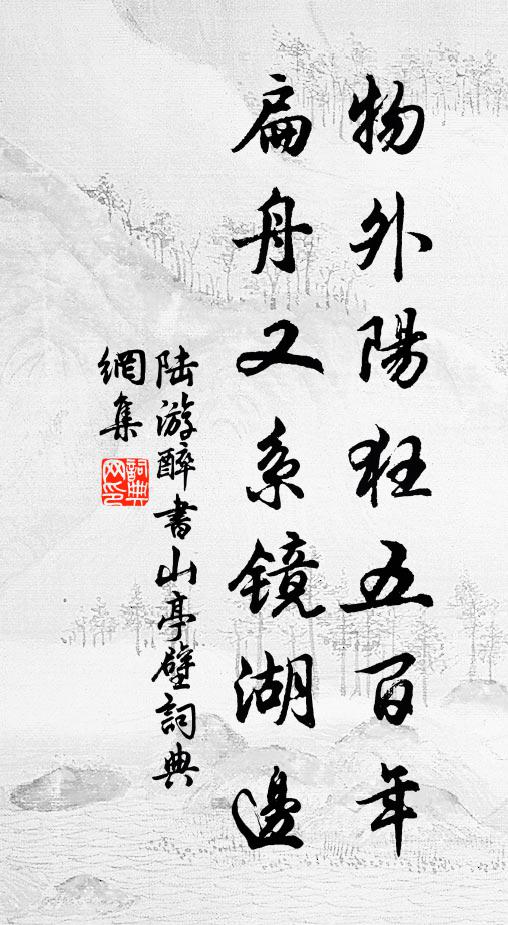 物外陽狂五百年
扁舟又系鏡湖邊
陆游醉書山亭壁詞典
網集
詞典
网印